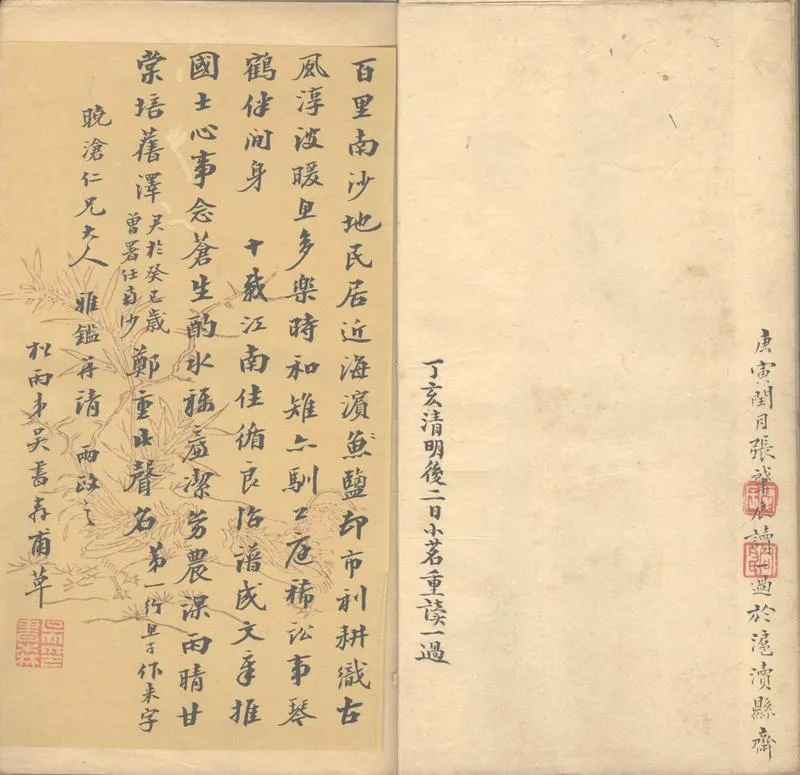 庚寅閏月張肇辰讀一過於滬瀆縣齋
丁亥清明後二日小茗重讀一過
百里南沙地民居近海濱魚鹽却市利耕織古
風淳波暖且多樂時和雉亦馴公庭稀訟事琴
鶴伴閒身 十載江南住循良治譜成文章推
國士心事念蒼生酌水稱廉潔勞農課雨晴甘
棠培舊澤 君於癸巳歲曾署任南沙 鄭重此聲名 第一行且字作来字
晚滄仁兄大人 雅鑑并請 兩政之
松雨弟吳書森甫草